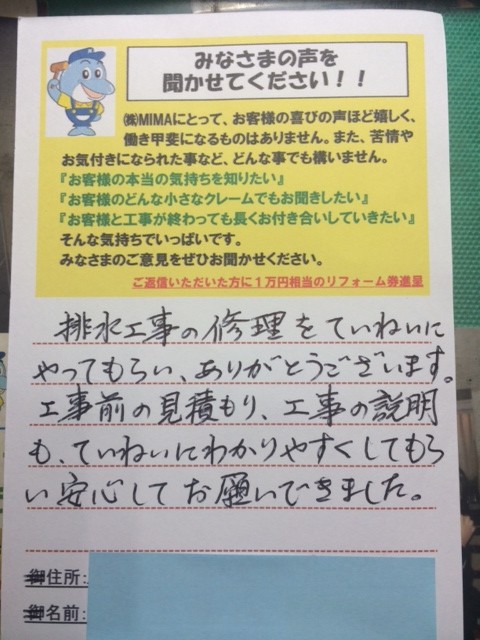 みなさまの声を
聞かせてください!!
㈱MIMAにとって、お客様の喜びの声ほど嬉しく、
働き甲斐になるものはありません。また、苦情や
お気付きになられた事など、どんな事でも構いません。
『お客様の本当の気持ちを知りたい』
『お客様のどんな小さなクレームでもお聞きしたい』
『お客様と工事が終わっても長くお付き合いしていきたい』
そんな気持ちでいっぱいです。
みなさまのご意見をぜひお聞かせください。
ご返信いただいた方に1万円相当のリフォーム券進呈
排水工事の修理をていねいに
やってもらい、ありがとうございます。
工事前の見積もり、工事の説明
も、ていねいにわかりやすくしてもら
い安心してお願いできました。
御住所:
御名前: